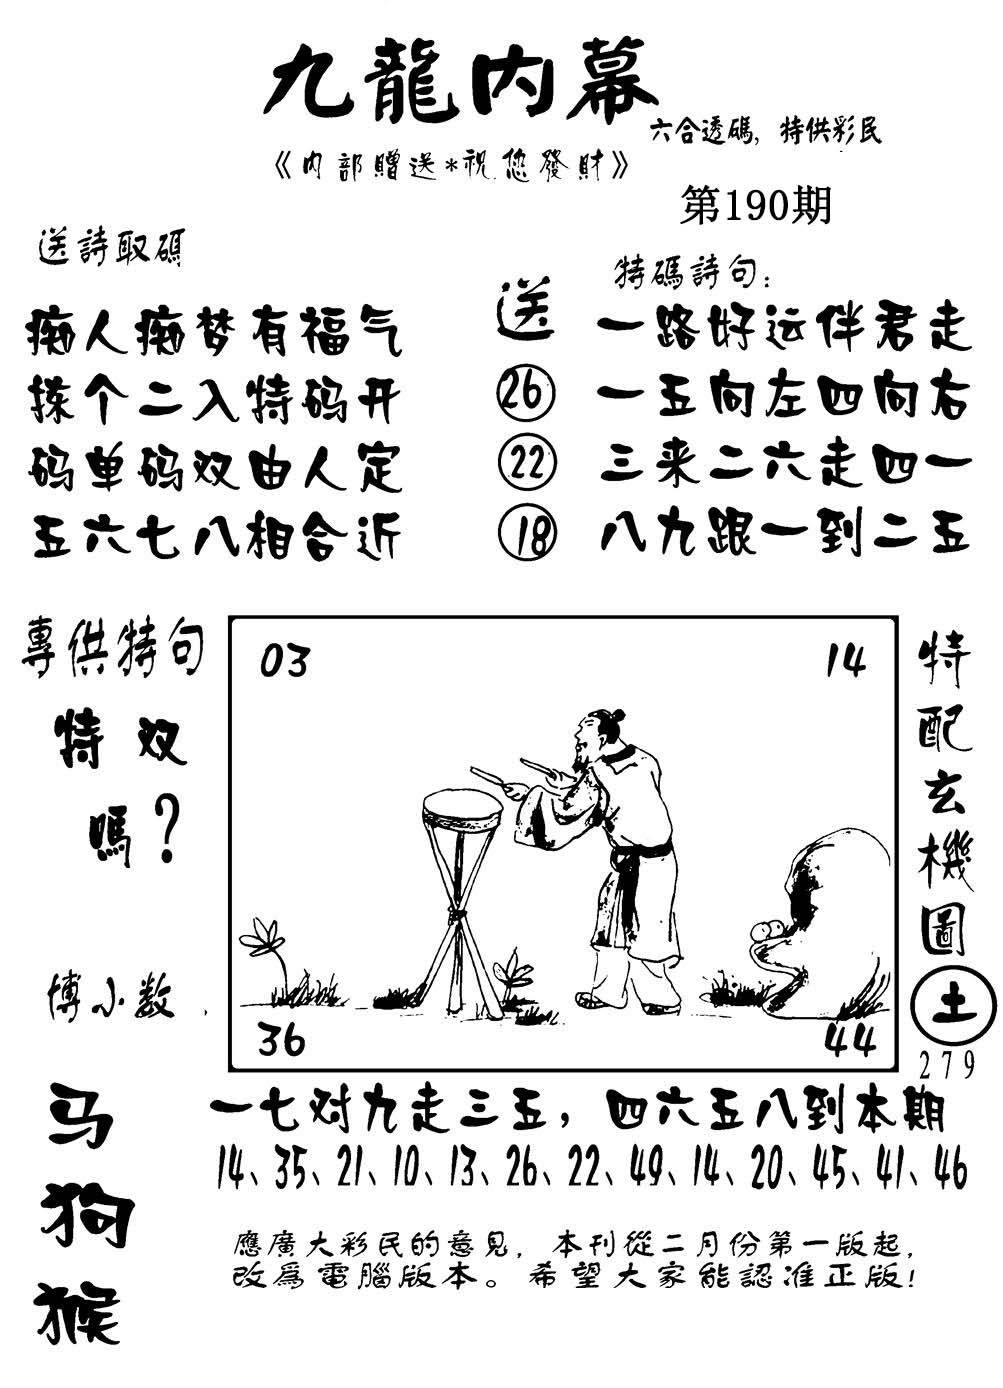 九龍内幕
六合透碼，特供彩民
《内部贈送*祝您發財》
第190期
送詩取碼
痴人痴梦有福气
拣个二入特码开
码单码双由人定
五六七八相合近
送
26
22
18
特碼詩句：
一路好运伴君走
一五向左四向右
三来二六走四一
八九跟一到二五
專供特句
特双
嗎？
博小数
03
14
36
44
特配玄機圖
土
279
马
狗
猴
一七对九走三五，四六五八到本期
14、35、21、10、13、26、22、49、14、20、45、41、46
應廣大彩民的意見，本刊從二月份第一版起，
改爲電腦版本。希望大家能認准正版！